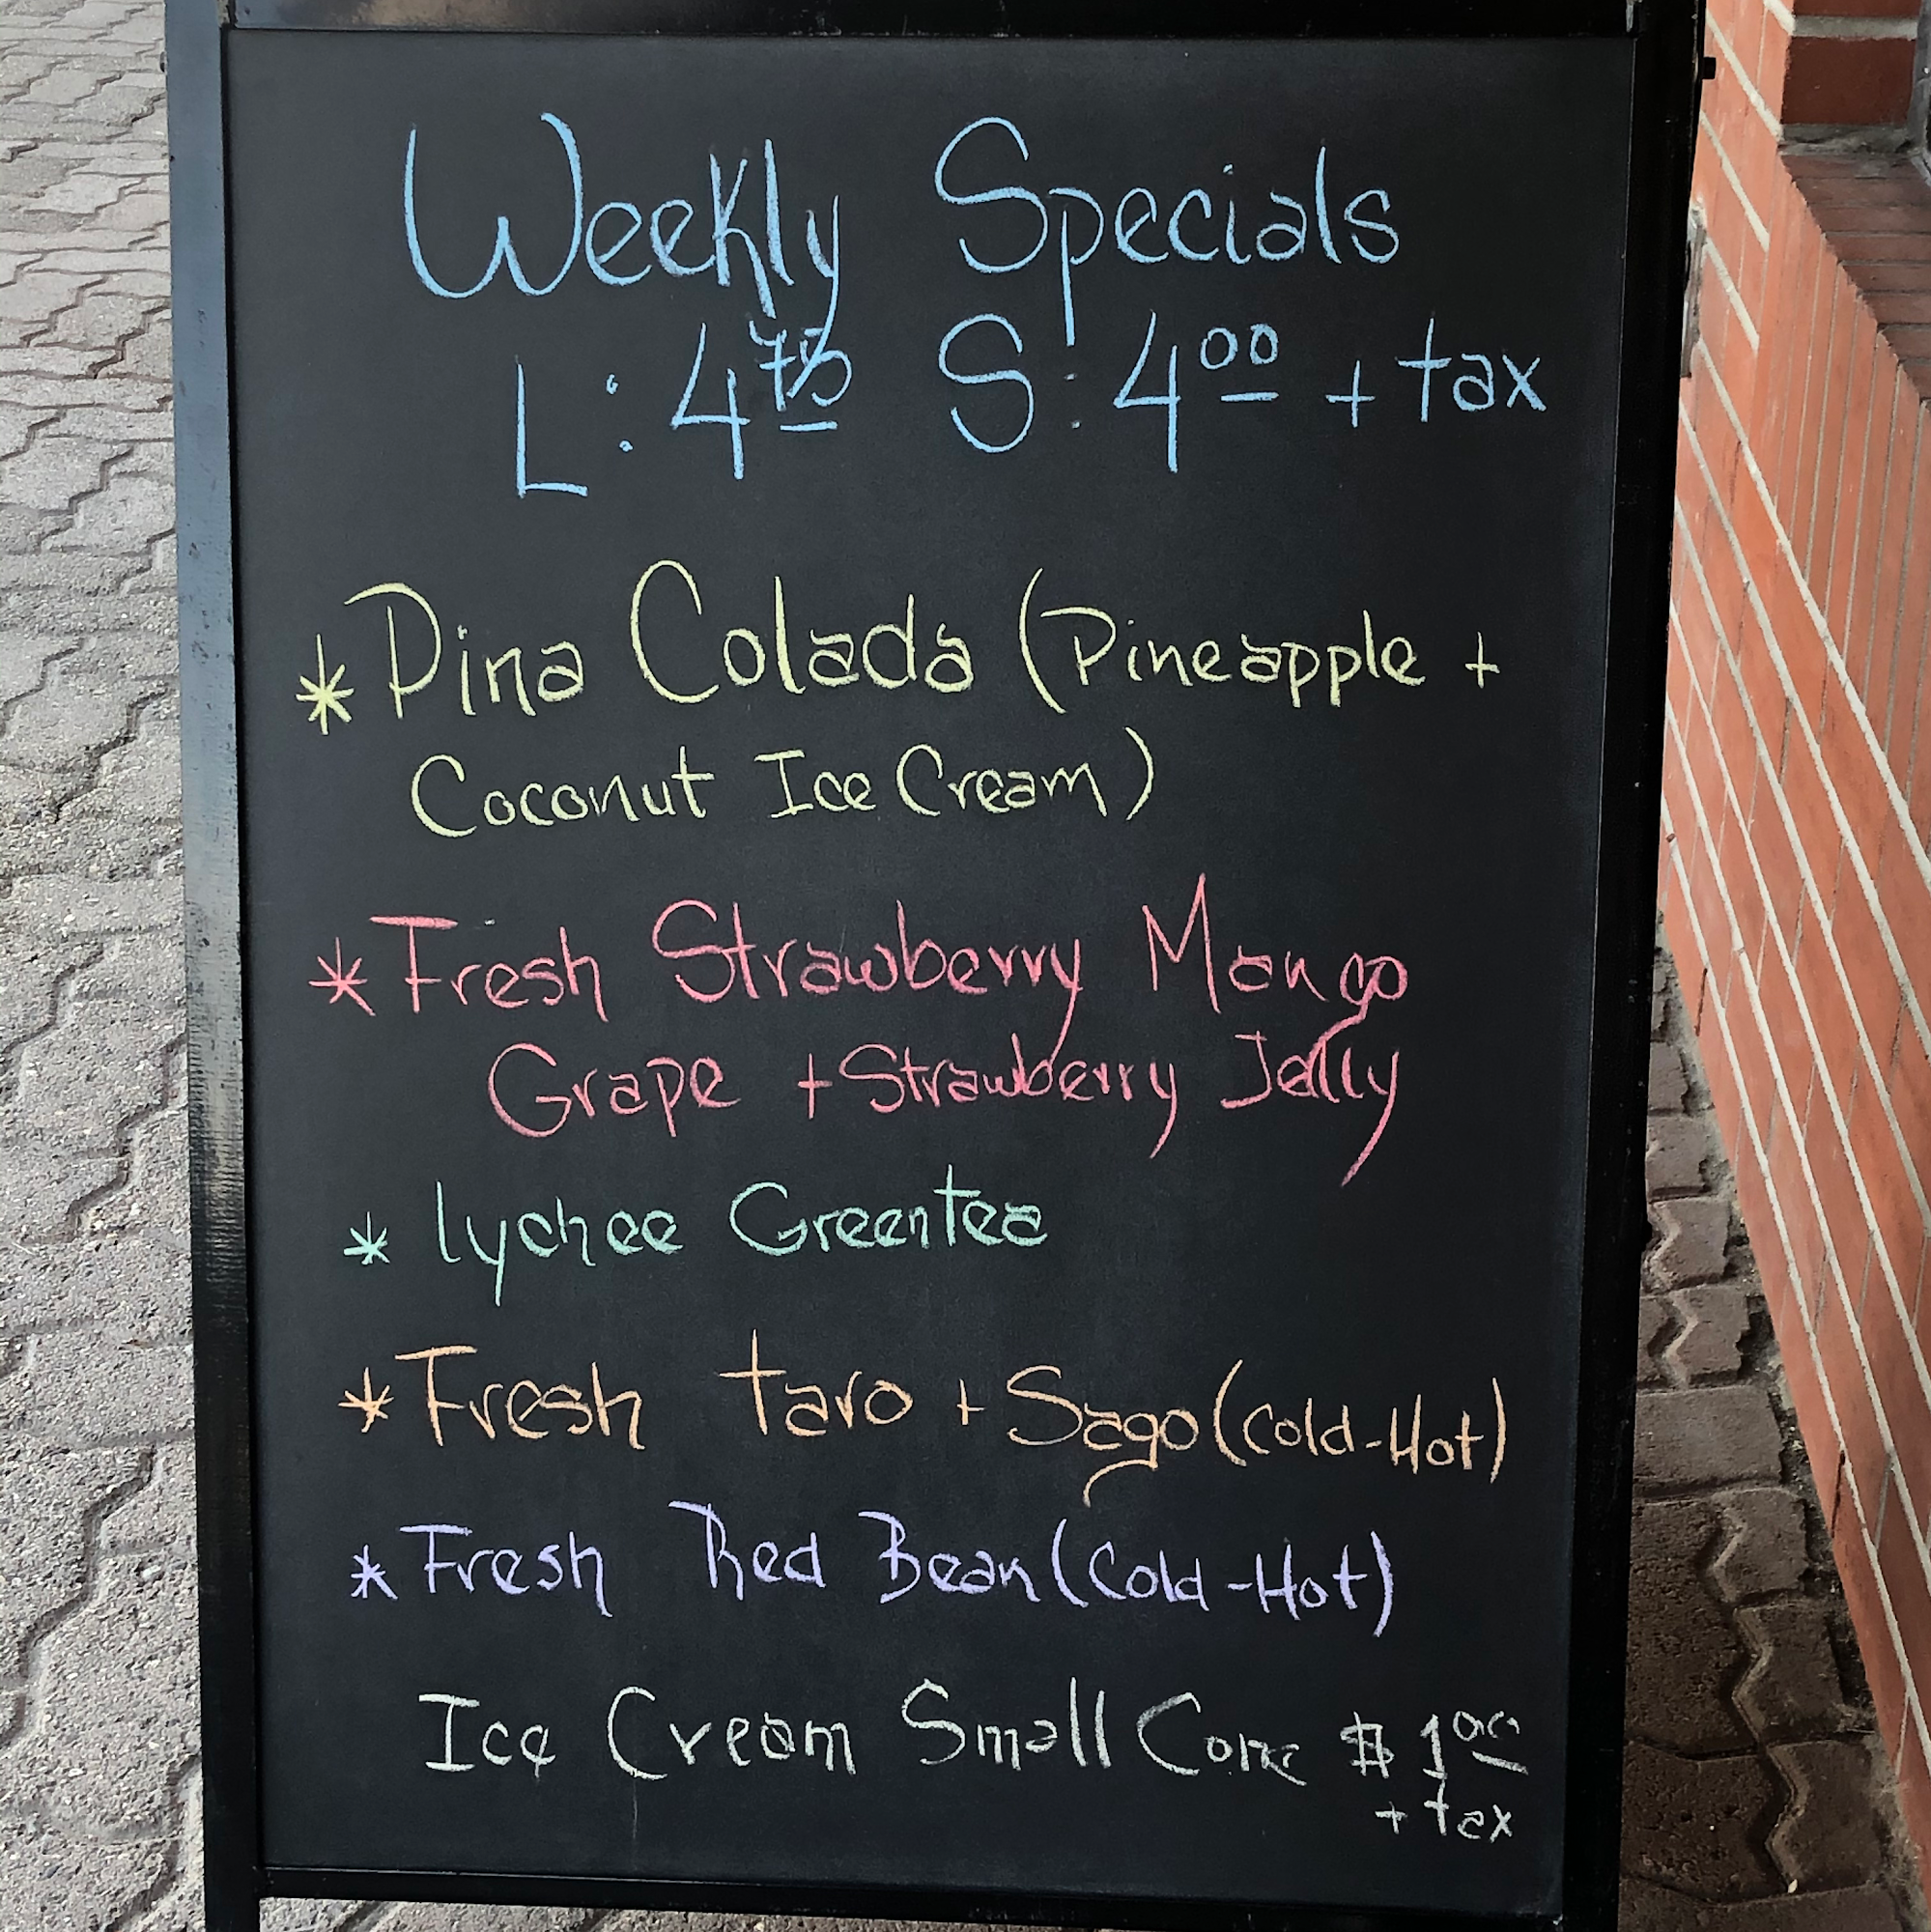 Weekly Specials
L: 4.75 S: 4.00 + tax
* Pina Colada (Pineapple +
Coconut Ice Cream)
* Fresh Strawberry Mango
Grape + Strawberry Jelly
* lychee Greentea
* Fresh taro + Sago (Cold-Hot)
* Fresh Red Bean (Cold-Hot)
Ice Cream Small Cone $ 1.00
+ tax